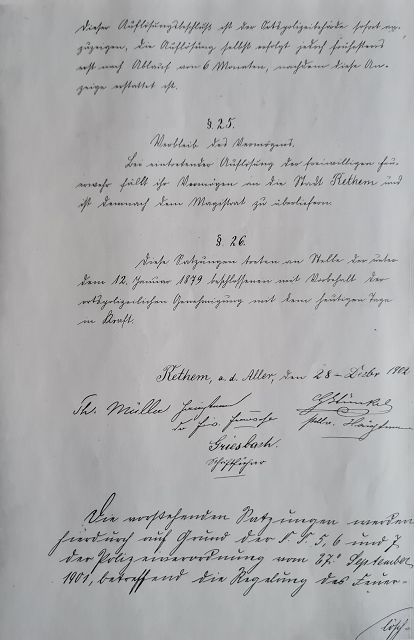 Dieser Auflösungsbeschluß ist der Ortspolizeibehörde sofort an-
zuzeigen, die Auflösung selbst erfolgt jedoch frühestens
erst nach Ablauf von 6 Monaten, nachdem diese An-
zeige erstattet ist.
§. 25.
Verbleib des Vermögens.
Bei eintretender Auflösung der freiwilligen Feu-
erwehr fällt ihr Vermögen an die Stadt Rethem und
ist demnach dem Magistrat zu überliefern.
§. 26.
Diese Satzungen treten an Stelle der unter
dem 12. Januar 1879 beschlossenen mit Vorbehalt der
ortspolizeilichen Genehmigung mit dem heutigen Tage
in Kraft.
Rethem, a. d. Aller, den 28 Dezbr 1902
Th. Müller Hauptmann
stellv. Hauptmann
Griesbach.
Schriftführer
Die vorstehenden Satzungen werden
hierdurch auf Grund der §§. 5, 6 und 7
der Polizeiverordnung vom 27. September
1901, betreffend die Regelung des Feuer-
lösch-